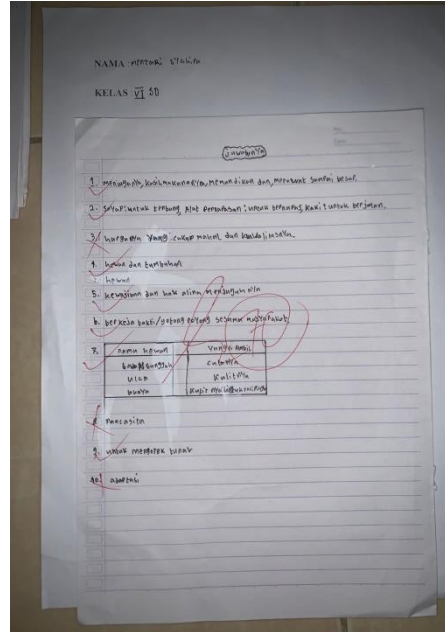 NAMA : MENTARI
KELAS VI SD
Jawabnya
1. Menjaganya, kasi makanannya, memandikan dan, merawat sampai besar.
2. Sayap: untuk terbang, Alat pernapasan: untuk bernapas, kaki: untuk berjalan.
3. harganya yang cukup mahal dan kualitasnya.
4. hewan dan tumbuhan
hewan
5. kewajiban dan hak
6. berkeja bakti/gotong royong sesama masyarakat.
7. nama hewan Yang diambil
culanya
ular kulitnya
buaya kulit
8. Pancasila
9. untuk
10. adaptasi